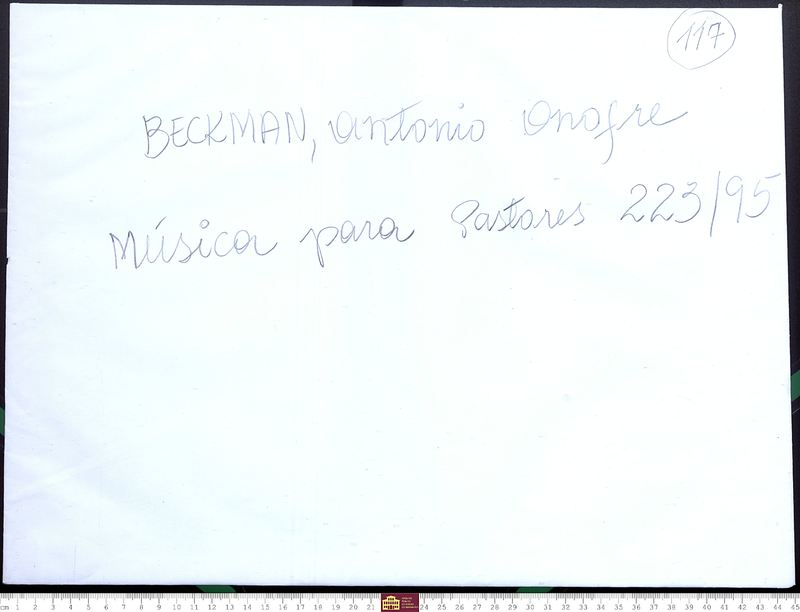 117
BECKMAN, Antonio Onofre
Música para Pastores 223/95
cm 1 2 3 4 5 6 7 8 9 10 11 12 13 14 15 16 17 18 19 20 21 24 25 26 27 28 29 30 31 32 33 34 35 36 37 38 39 40 41 42 43 44